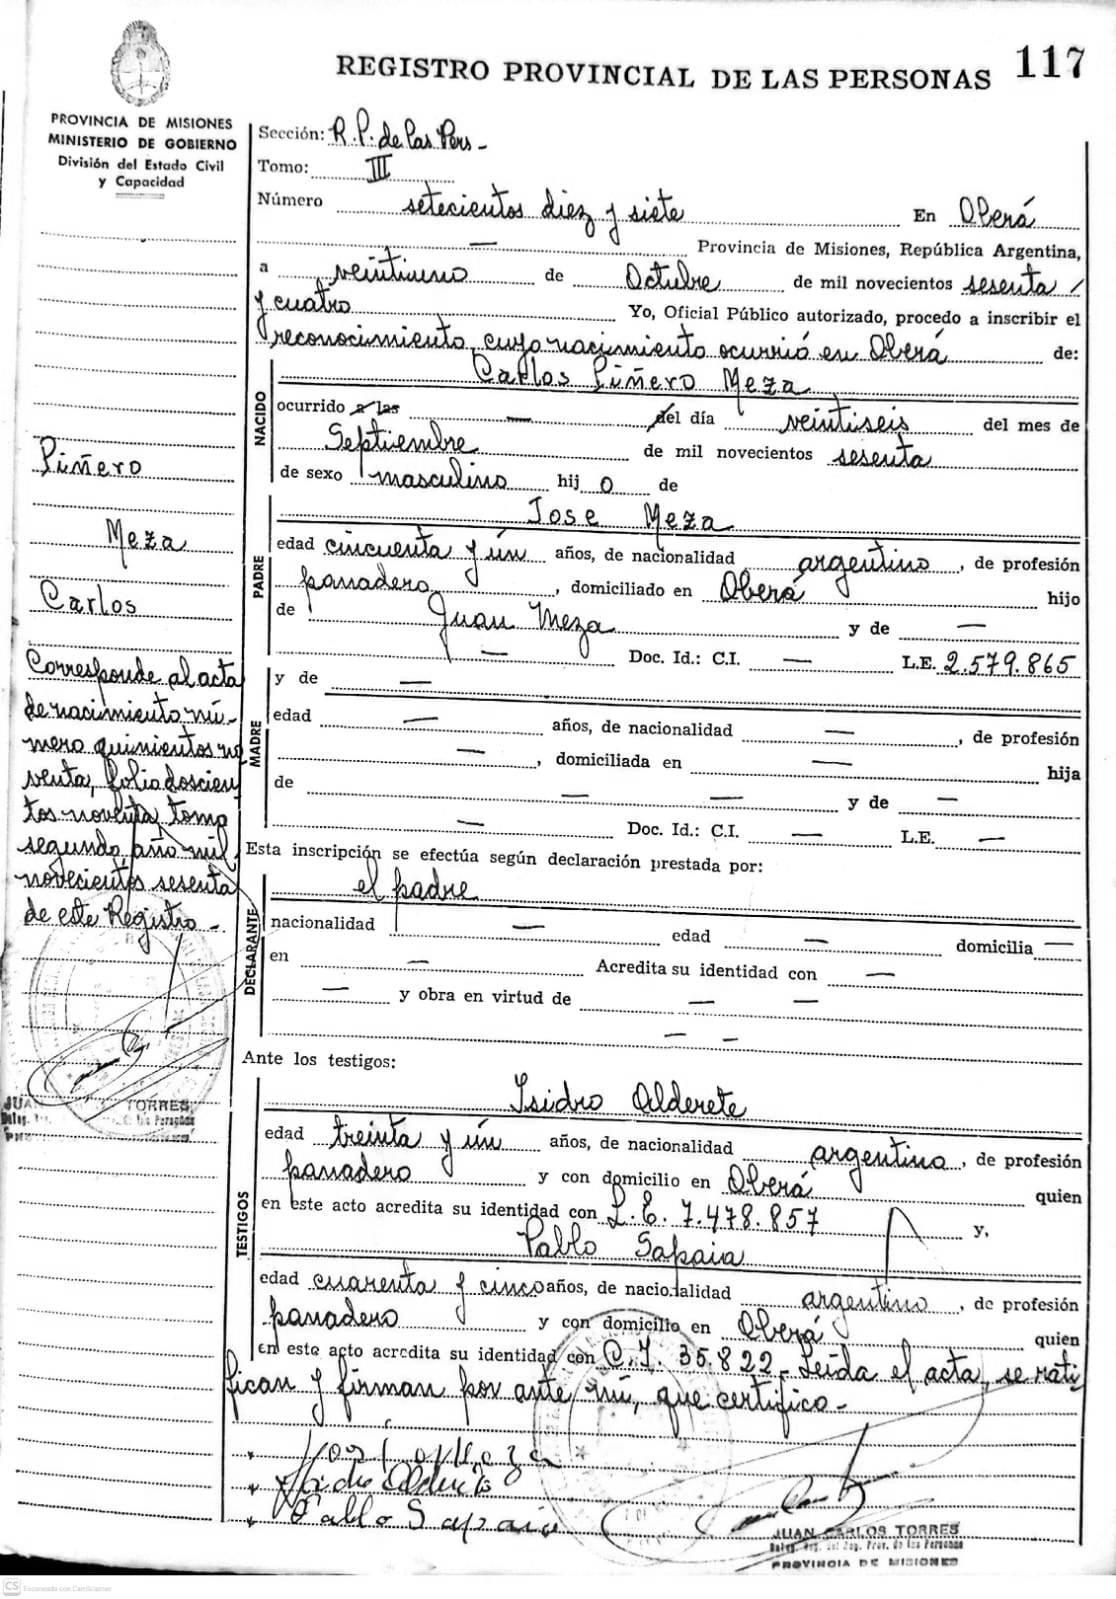 117
REGISTRO PROVINCIAL DE LAS PERSONAS
PROVINCIA DE MISIONES
MINISTERIO DE GOBIERNO
División del Estado Civil
y Capacidad
Sección: R.P. de las Pers -
Tomo: III
Número setecientos diez y siete En Oberá
— Provincia de Misiones, República Argentina,
a veintiuno de Octubre de mil novecientos sesenta /
y cuatro Yo, Oficial Público autorizado, procedo a inscribir el
reconocimiento, cuyo nacimiento ocurrió en Oberá de:
NACIDO
Carlos Piñero Meza
ocurrido a las — del día veintiseis del mes de
Septiembre de mil novecientos sesenta
de sexo masculino hij o de
PADRE
Jose Meza
edad cincuenta y ún años, de nacionalidad argentino, de profesión
panadero, domiciliado en Oberá hijo
de Juan Meza y de —
— Doc. Id.: C.I. — L.E. 2.579.865
MADRE
y de —
edad — años, de nacionalidad —, de profesión
—, domiciliada en — hija
de — — y de —
— Doc. Id.: C.I. — L.E. —
Esta inscripción se efectúa según declaración prestada por:
DECLARANTE
el padre
nacionalidad — edad — domicilia —
en — Acredita su identidad con —
— y obra en virtud de — —
— —
Ante los testigos:
TESTIGOS
Isidro Alderete
edad treinta y ún años, de nacionalidad argentino, de profesión
panadero y con domicilio en Oberá quien
en este acto acredita su identidad con L.E. 7.478.857 y,
Pablo Sapaia
edad cuarenta y cinco años, de nacionalidad argentino, de profesión
panadero y con domicilio en Oberá quien
en este acto acredita su identidad con C.I. 35.822 - Leída el acta, se rati
fican y firman por ante mí, que certifico -
Isidro Alderete
Pablo Sapaia
JUAN CARLOS TORRES
Prov. de las Personas
PROVINCIA DE MISIONES
Piñero
Meza
Carlos
Corresponde al acta
de nacimiento nú-
mero quinientos no
venta, folio doscien
tos noventa, tomo
segundo, año mil
novecientos sesenta
de este Registro -
JUAN TORRES
CS Escaneado con CamScanner